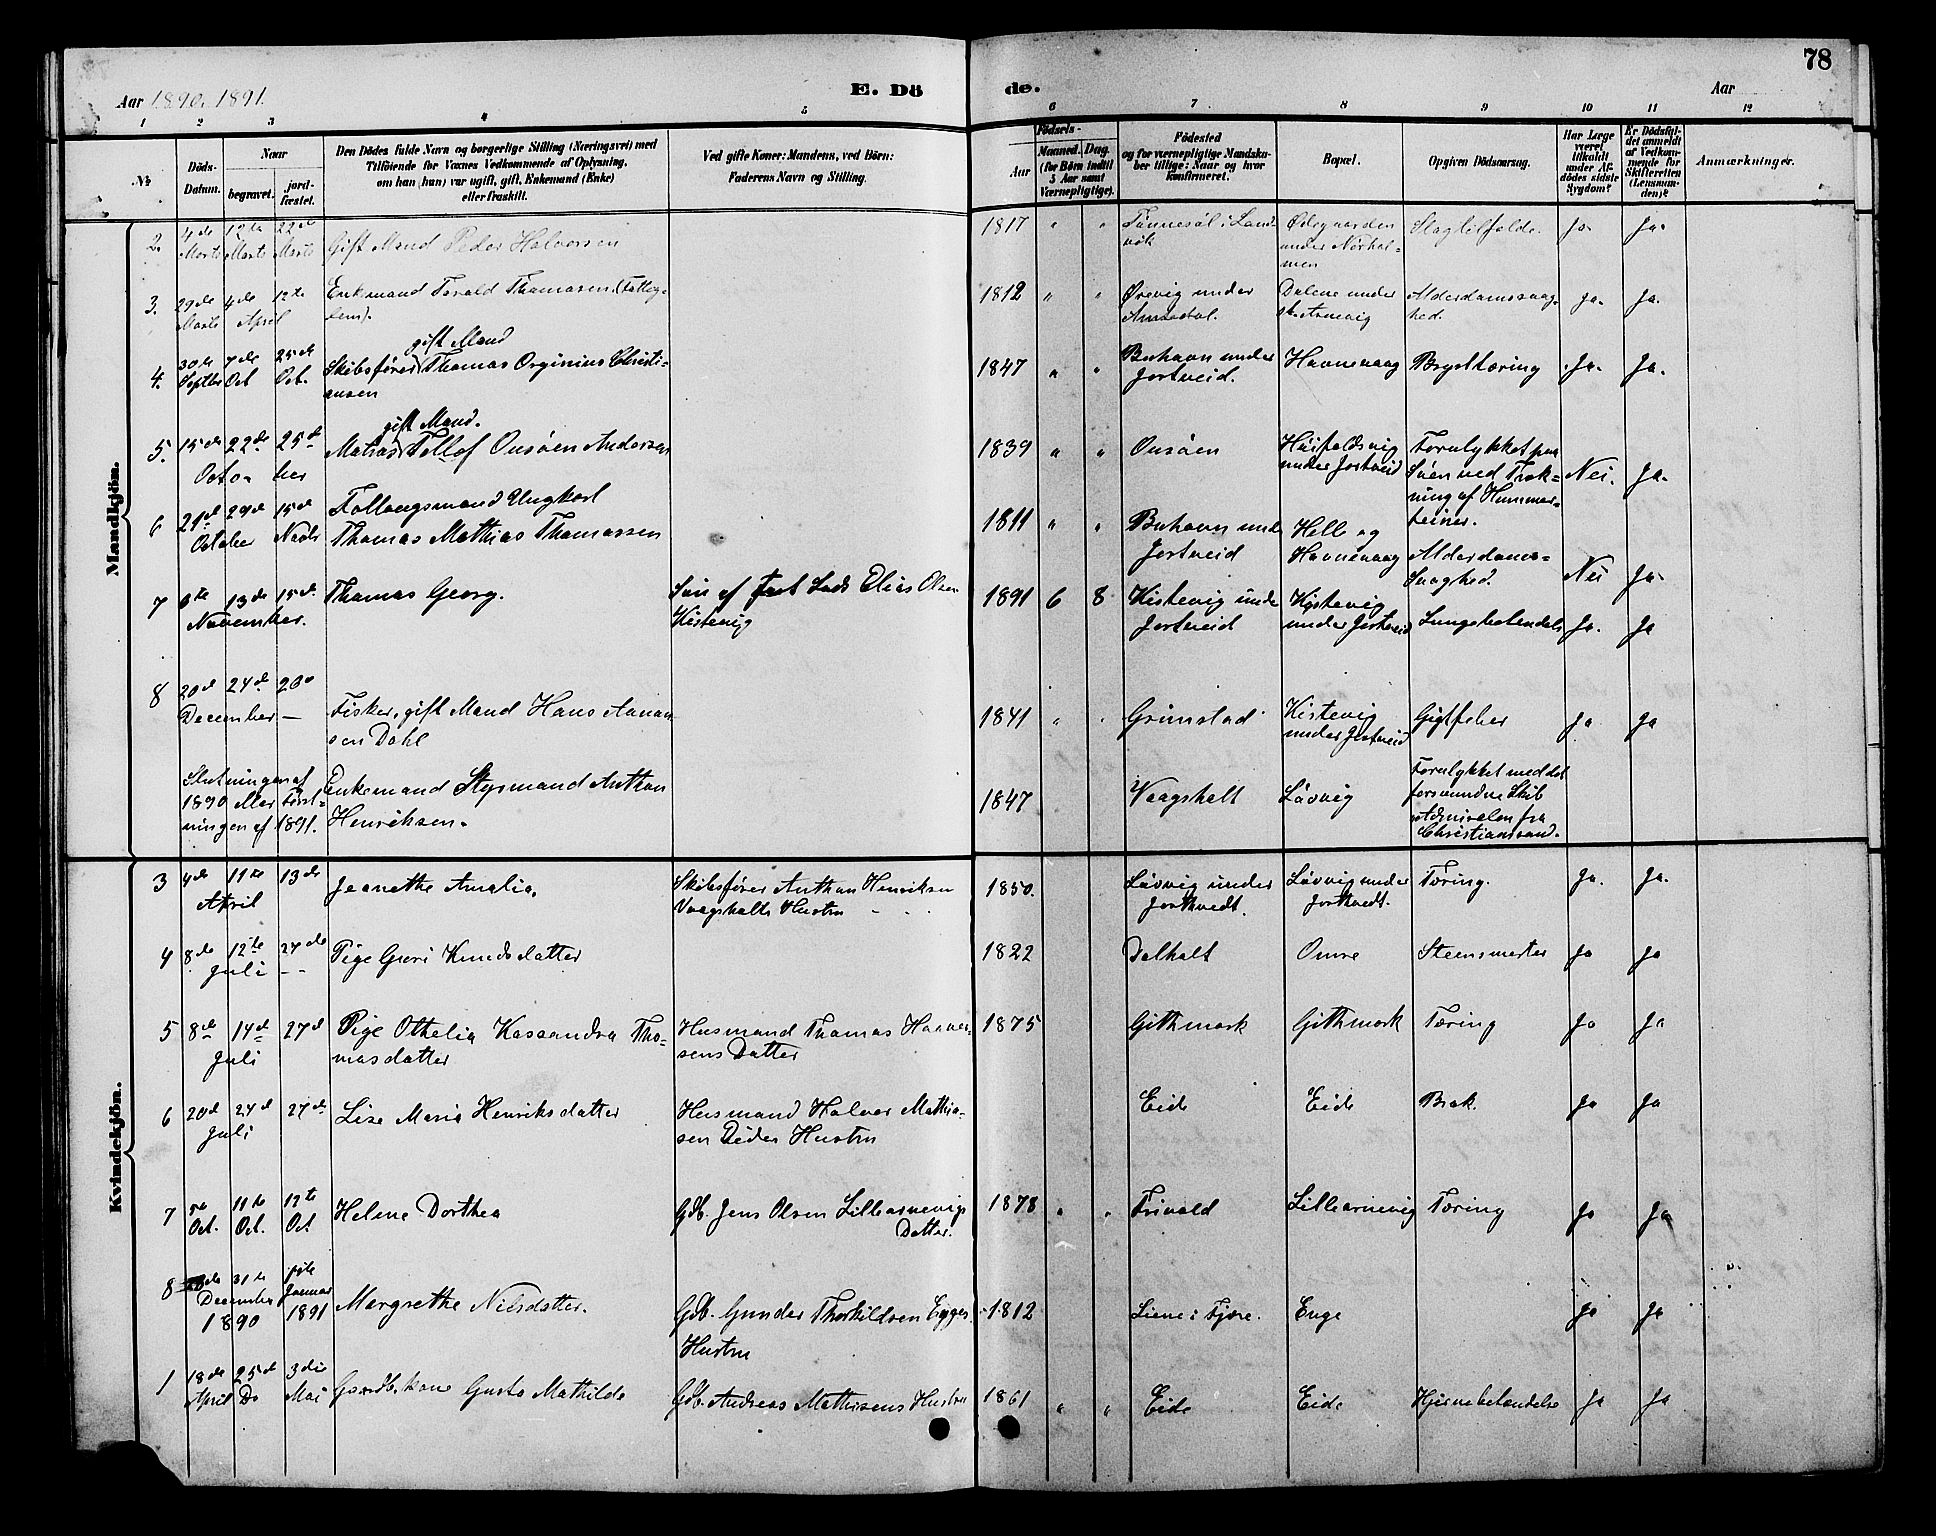 78
Aar 1890, 1891.
E. Dö
de.
Aar
1 2 3 4 5 6 7 8 9 10 11 12
No
Döds-Datum.
Naar
begravet.
jord-fæstet.
Den Dödes fulde Navn og borgerlige Stilling (Næringsvei) med
Tilföiende for Voxnes Vedkommende af Oplysning,
om han (hun) var ugift, gift, Enkemand (Enke)
eller fraskilt.
Ved gifte Koner: Mandens, ved Börn:
Faderens Navn og Stilling.
Födsels-
Aar
Maaned. Dag.
(for Börn indtil
5 Aar samt
Værnepligtige).
Födested
og for værnepligtige Mandska-
ber tillige: Naar og hvor
konfirmeret.
Bopæl.
Opgiven Dödsaarsag.
Har Læge
været
tilkaldt
under Af-
dödes sidste
Sygdom?
Er Dödsfal-
det anmeldt
af Vedkom-
mende for
Skifteretten
(Lensman-
den)?
Anmærkninger.
Mandkjön.
2. 4de Marts 12te Marts 22de Marts Gift Mand Peder Halvorsen 1817 " " Tönnesöl i Land-
vik Ødegaarden
under Norhol-
men Slagtilfælde. Ja. Ja.
3. 29de Marts 4de 12te April Enkemand Torald Thomasen (Fattig-
lem). 1812 " " Ørevig under
Dalene under
Alderdomssvag-
hed. Ja. Ja.
gift Mand
4. 30te Septbr 7de Oct 25de Oct. Skibsfører Thomas Orginius Christi-
ansen 1847 " " Buhavn under
Jortveid. Havnevaag Brysttæring Ja. Ja.
gift Mand.
5. 15de 22de 25de October Mathias Tellof Ousöen Andersen 1839 " " Ousöen Husfaldsvig
under Jortveid Forulykket paa
Söen ved Træk-
ning af Hummer-
teiner. Nei. Ja.
6 21de 29de October 15de Novbr Fattiggsmand Ungkarl
Thomas Mathias Thomassen 1811 " " Buhavn unde
Jortveid Helle og
Havnevaag Alderdoms-
Svaghed. Nei Ja.
7 6te 13de 15de November. Thomas Georg. Sön af Elias Olsen
Kistevig 1891 6 8 Kistevig unde
Jortveid Kistevig
under Jortveid Lungebetendels Ja. Ja
8 20de 24de December — Fisker, gift Mand Hans Aanon
sen Dahl 1841 " " Grimstad Kistevig
under Jortveid Gigtfeber Ja Ja
Slutningen af
1890 eller Først-
ningen af 1891. Enkemand Styrmand Anthon
Henriksen. 1847 Vaagsholt Lövvig Forulykket med det
forsvundne Skib
fra
Christiansand.
Kvindekjön.
3 4de 11te 13de April Jeanethe Amalia. Skibsfører Anthon Henriksen
Vaagsholts Hustru 1850. Lövvig under
Jorthvedt. Lövvig under
Jorthvedt. Tæring. Ja. Ja.
4 8de 12te 27de Juli Pige Guri Knudsdatter 1822 Dalholt Omre Steensmerter Ja Ja
5 8de 14de 27de Juli Pige Othelia Kassandra Tho-
masdatter Husmand Thomas Halvor-
sens Datter 1875 Githmark Githmark Tæring Ja Ja
6 20de 24de 27de Juli Lise Maria Henriksdatter Husmand Halvor Mathia-
sen Eides Hustru Eide Eide Brok. Ja Ja
7 5te Oct. 11te Oct. 12te Oct Helene Dorthea Gdb. Jens Olsen Lillearnevigs
Datter. 1878 " " Trivold Lillearnevig Tæring Ja Ja
8 December 31te Januar
1890 1891 Margrethe Nilsdatter. Gdb. Gunder Thorkildsen Egges
Hustru 1812 Liene i Fjære. Enge Ja Ja
1 18de April 25de Do 3die Mai Gaardbr.kone Gusta Mathilde Gdb. Andreas Mathisens Hustru 1861 " " Eide Eide Hjernebetændelse Ja Ja